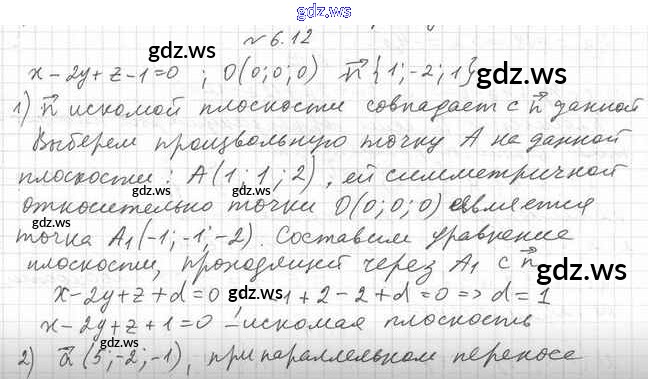 gdz.ws
№ 6.12
gdz.ws
gdz.ws
x - 2y + z - 1 = 0 ; O(0; 0; 0) n⃗ {1; -2; 1}
1) n⃗ искомой плоскости совпадает с n⃗ данной
Выберем произвольную точку A на данной
gdz.ws
плоскости: A(1; 1; 2), ей симметричной
gdz.ws
относительно точки O(0; 0; 0) является
точка A₁(-1; -1; -2). Составим уравнение
плоскости, проходящей через A₁ с n⃗
gdz.ws
gdz.ws
x - 2y + z + d = 0 1 + 2 - 2 + d = 0 => d = 1
x - 2y + z + 1 = 0 - искомая плоскость
2) a⃗ (5; -2; -1), при параллельном переносе
gdz.ws